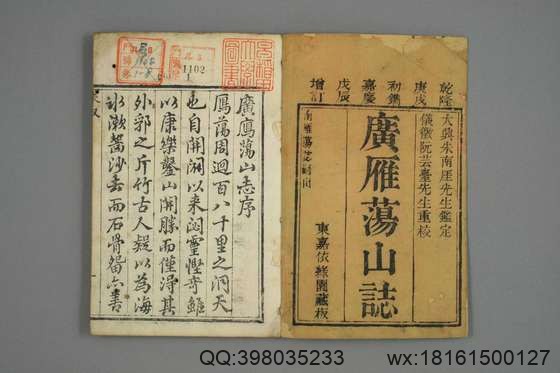 乾隆
庚戌
初鐫
嘉慶
戊辰
增訂
大興朱南厓先生鑑定
儀徵阮芸臺先生重校
廣雁蕩山誌
南雁蕩誌附
東嘉依綠園藏板
廣雁蕩山志序
雁蕩周迴百八千里之洞天
也自開闢以來閟靈慳奇雖
以康樂鑿山開勝而僅得其
外郛之斤竹古人疑以為海
水漱齧沙去而石骨留亦書
1102
QQ:398035233
wx:18161500127